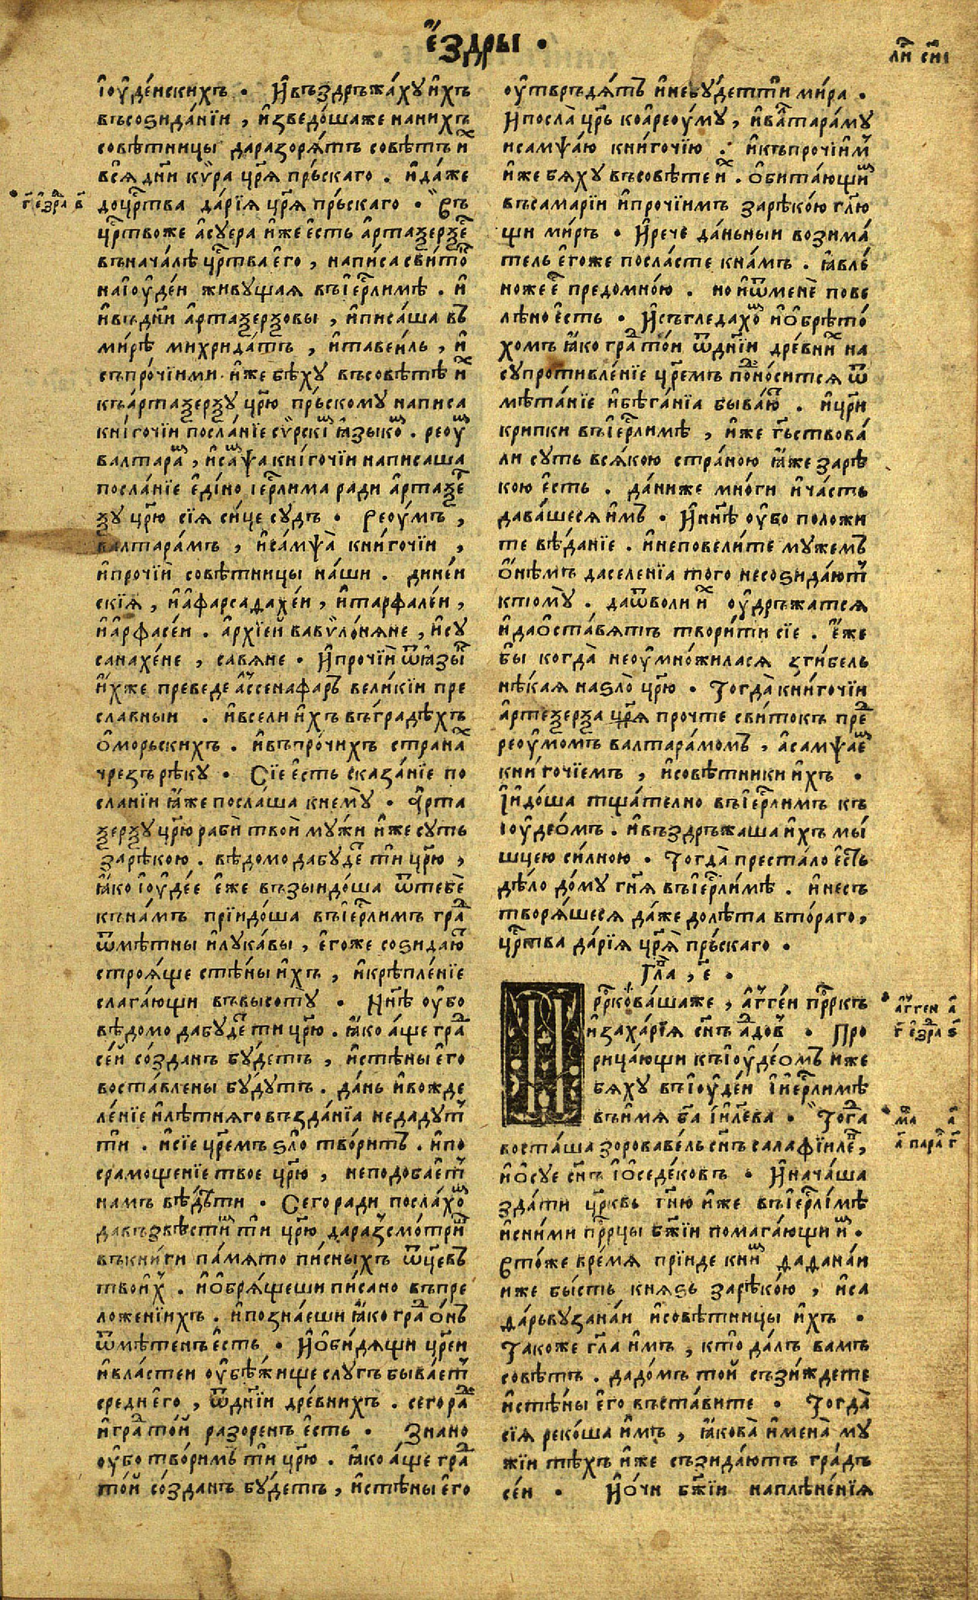 е҆́здры •
ли́ сн҃і
і҆оуде́искихъ • И҆въздръжа́хуи҆́хъ
въсоѕида́нїи , и҆зведо́шаже нани́хъ
совѣ́тницы даразоря́тъ совѣ́тъ и҆х
вся̀ дн҃и кѵ́ра цр҃я̀ пръ́скаго . и҆да́же
доцр҃тва да́рїя цр҃я̀ пръ́скаго • Въ
г҃ е҆зра в҃
цр҃твоже а҆суера и҆́же е҆́сть а҆ртаѯе́рѯе
въначалѣ цр҃тва е҆го̀ , написа свито
наі҆оуде́и живущая въі҆ер҃лимѣ . и҆
и҆въдн҃и а҆ртаѯе́рѯовы , и҆писа́ша въ
ми́рѣ михрида́тъ , и҆тавеи́лъ , и҆
съпро́чїими и҆́же бѣ́ху въсовѣ́тѣ и҆х
къа҆ртаѯе́рѯу цр҃ю̀ пръ́скому написа
кни́гочїи посла́нїе сѵ́рски ꙗ҆зыко . реоу
валтара , и҆самѱа кни́гочїи написаша
посла́нїе е҆ди́но і҆ер҃лима ради а҆ртаѯе
ѯу цр҃ю̀ сїя̀ си́це су́дъ • Реоу́мъ ,
валтара́мъ , и҆самѱа̀ кни́гочїи ,
и҆про́чїи совѣ́тницы на́ши . дине́и
скїя , и҆а҆фарсадахе́и , и҆тарфале́и ,
и҆а҆рфасе́и . а҆рхїе́и вавѵло́няне , и҆су
санахе́не , савя́не • И҆про́чїи ѿꙗ҆зы
и҆́хже преведе а҆ссенафа́ръ вели́кїи пре
сла́вныи . и҆всели и҆́хъ въградѣ́хъ
о҆морьскихъ . и҆въпро́чихъ стра́на
чрезърѣку • Сїе е҆́сть сказа́нїе по
сла́нїи ꙗ҆́же послаша кнему̀ • А҆рта
ѯерѯу цр҃ю̀ рабѝ твоѝ му́жи и҆́же суть
зарѣкою . вѣ́домо дабуде ти цр҃ю̀ ,
ꙗ҆́ко і҆оуде́е е҆́же възыидо́ша ѿтебе
къна́мъ прїидо́ша въі҆ер҃лимъ гра
ѿмѣтны и҆лука́вы , е҆го́же соѕидаю
строя́ще стѣ́ны и҆́хъ , и҆крѣпле́нїе
слага́ющи въвысоту̀ • Нн҃ѣ оу҆бо
вѣ́домо дабуде ти цр҃ю̀ . ꙗ҆́ко а҆́ще гра
се́и со́зданъ бу́детъ , и҆стѣ́ны е҆го̀
воставлены бу́дутъ . да́нь и҆вожде
ле́нїе и҆лѣ́тняго въздаѐнїя недаду́т
ти . и҆сїе цр҃емъ ѕло твори́тъ . и҆по
срамощенїе твое цр҃ю̀ , неподоба́ет
намъ вѣ́дѣти • Сего ради послахо
давъзвѣсти ти цр҃ю̀ даразсмотри
въкни́ги па́мято пи́сныхъ ѿц҃евъ
твои́х . и҆о҆бря́щеши пи́сано въпре
ложе́нїихъ . и҆позна́еши ꙗ҆́ко гра о҆́нъ
ѿмѣ́тенъ е҆́сть • И҆о҆би́дящи цр҃еи
и҆власте́и оу҆бѣ́жище слугъ быва́ет
среди е҆го , ѿдн҃їи дре́внихъ . сегора
и҆гра то́и разоре́нъ е҆́сть • Зна́но
оу҆бо твори́мъ ти цр҃ю̀ . ꙗ҆́ко а҆́ще гра
то́и со́зданъ бу́детъ , и҆стѣ́ны е҆го̀
оу҆твръдя́тъ и҆небу́детти ми́ра .
И҆посла̀ цр҃ь коа҆реоу́му , и҆валтара́му
и҆самѱа́ю кни́гочїю . и҆къпро́чїим
и҆́же бяху въсовѣте и҆х . о҆бита́ющи
въсама́рїи и҆про́чїимъ зарѣко́ю гл҃ю
щи ми́ръ • И҆рече да́ньныи возима́
тель е҆го́же посла́сте кна́мъ . ꙗ҆вле
ноже е҆ предомно́ю . но и҆ѿменѐ пове
лѣно е҆́сть • И҆съгледахо и҆о҆брѣто́
хомъ ꙗ҆́ко гра то́и ѿдн҃їи дре́вних на
супротивле́нїе цр҃емъ поно́сится ѿ
мѣта́нїе и҆бѣга́нїа быва́ю . и҆цр҃и
крипки въі҆ер҃лимѣ , и҆́же гъствова́
ли суть вся́кою страно́ю ꙗ҆́же зарѣ
ко́ю е҆́сть . да́ниже мно́ги и҆ча́сть
дава́шеся и҆мъ • И҆нн҃ѣ оу҆́бо положи
те вѣ́данїе . и҆неповели́те муже́мъ
о҆́нѣмъ даселенїа того несоѕида́ют
ктому̀ . даѿволи и҆х оу҆дръжа́тся
и҆дао҆ста́вятъ твори́ти сїе . е҆́же
бы когда̀ неоу҆мно́жилася згибель
нѣ́кая наѕло̀ цр҃ю̀ • Тогда̀ кни́гочїи
а҆ртеѯе́рѯа цр҃я̀ прочте свитокъ пре
реоу́момъ валтара́момъ , а҆самѱае
кни́гочїемъ , и҆совѣ́тники и҆́хъ •
І҆и҆до́ша тща́телно въі҆ер҃лимъ къ
і҆оудео́мъ . и҆въздръжаша и҆́хъ мы́
шцею си́лною • Тогда̀ преста́ло е҆́сть
дѣ́ло до́му гн҃я въі҆ер҃ли́мѣ . и҆несъ
творя́шеся да́же долѣ́та вто́раго ,
цр҃тва да́рїя цр҃я̀ пръ́скаго •
Гла , е҃ •
Пр҃рко́ва́шаже , а҆гге́и пр҃ркъ
и҆заха́рїя сн҃ъ а҆дов • Про
рица́ющи къі҆оуде́омъ и҆же
бя́ху въі҆оуде́и і҆и҆ер҃лимѣ
въи́мя бг҃а і҆и҃лева • Тогда
а҆гге́и а҃
г҃ е҆зра ѕ҃
мѳа а҃
а҃ пара г҃
воста́ша зорова́вель сн҃ъ салафїиле ,
и҆о҆́суе сн҃ъ і҆о҆седе́ковъ • И҆нача́ша
зда́ти цр҃квь гн҃ю и҆́же въі҆ер҃ли́мѣ
и҆сни́ми пр҃рцы бж҃їи помага́ющи и҆м .
Въто́же вре́мя прїиде кни даданаи
и҆же бы́сть кня́ѕь зарѣко́ю , и҆са
да́рьвузана́и и҆совѣ́тницы и҆́хъ •
Такоже гла и҆мъ , кто̀ да́лъ вамъ
совѣ́тъ . дадо́мъ то́и съзи́ждете
и҆стѣ́ны е҆го̀ въста́вите • Тогда̀
сїя̀ реко́ша и҆мъ , ꙗ҆кова̀ и҆мена́ му
жїи тѣ́хъ и҆же съзида́ютъ гра́дъ
се́и • И҆о҆чи бж҃їи наплѣне́нїя